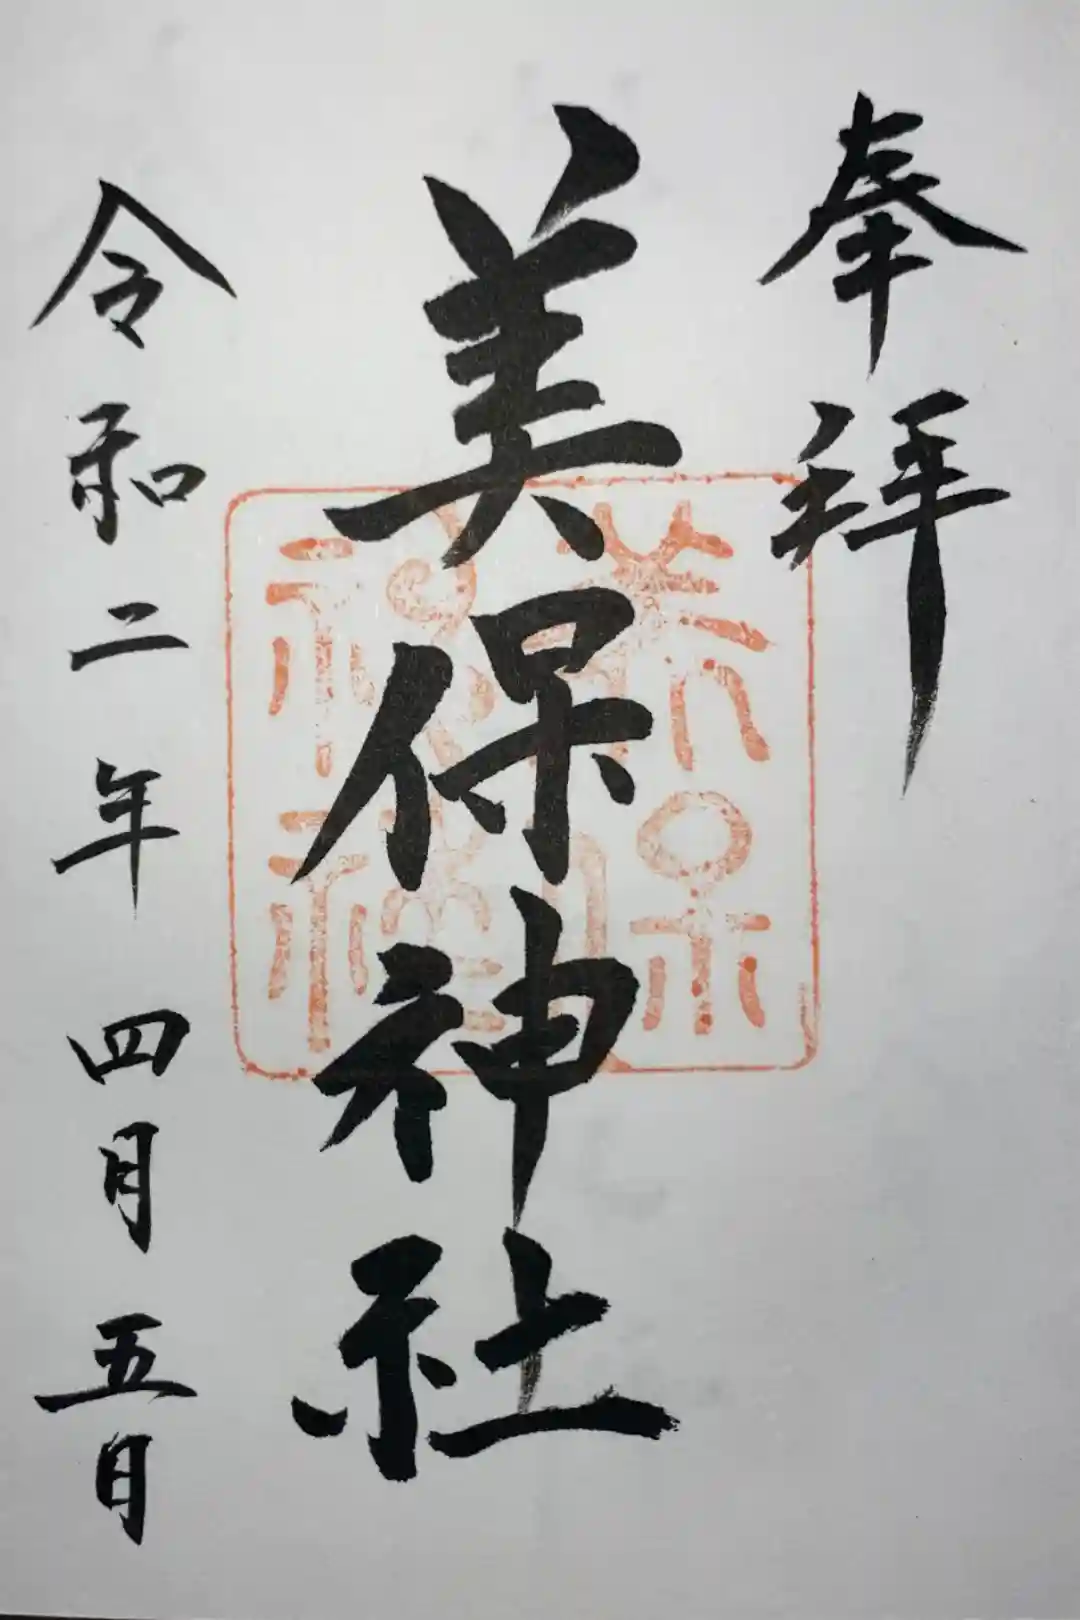 奉拝
美保神社
美保神社
令和二年四月五日